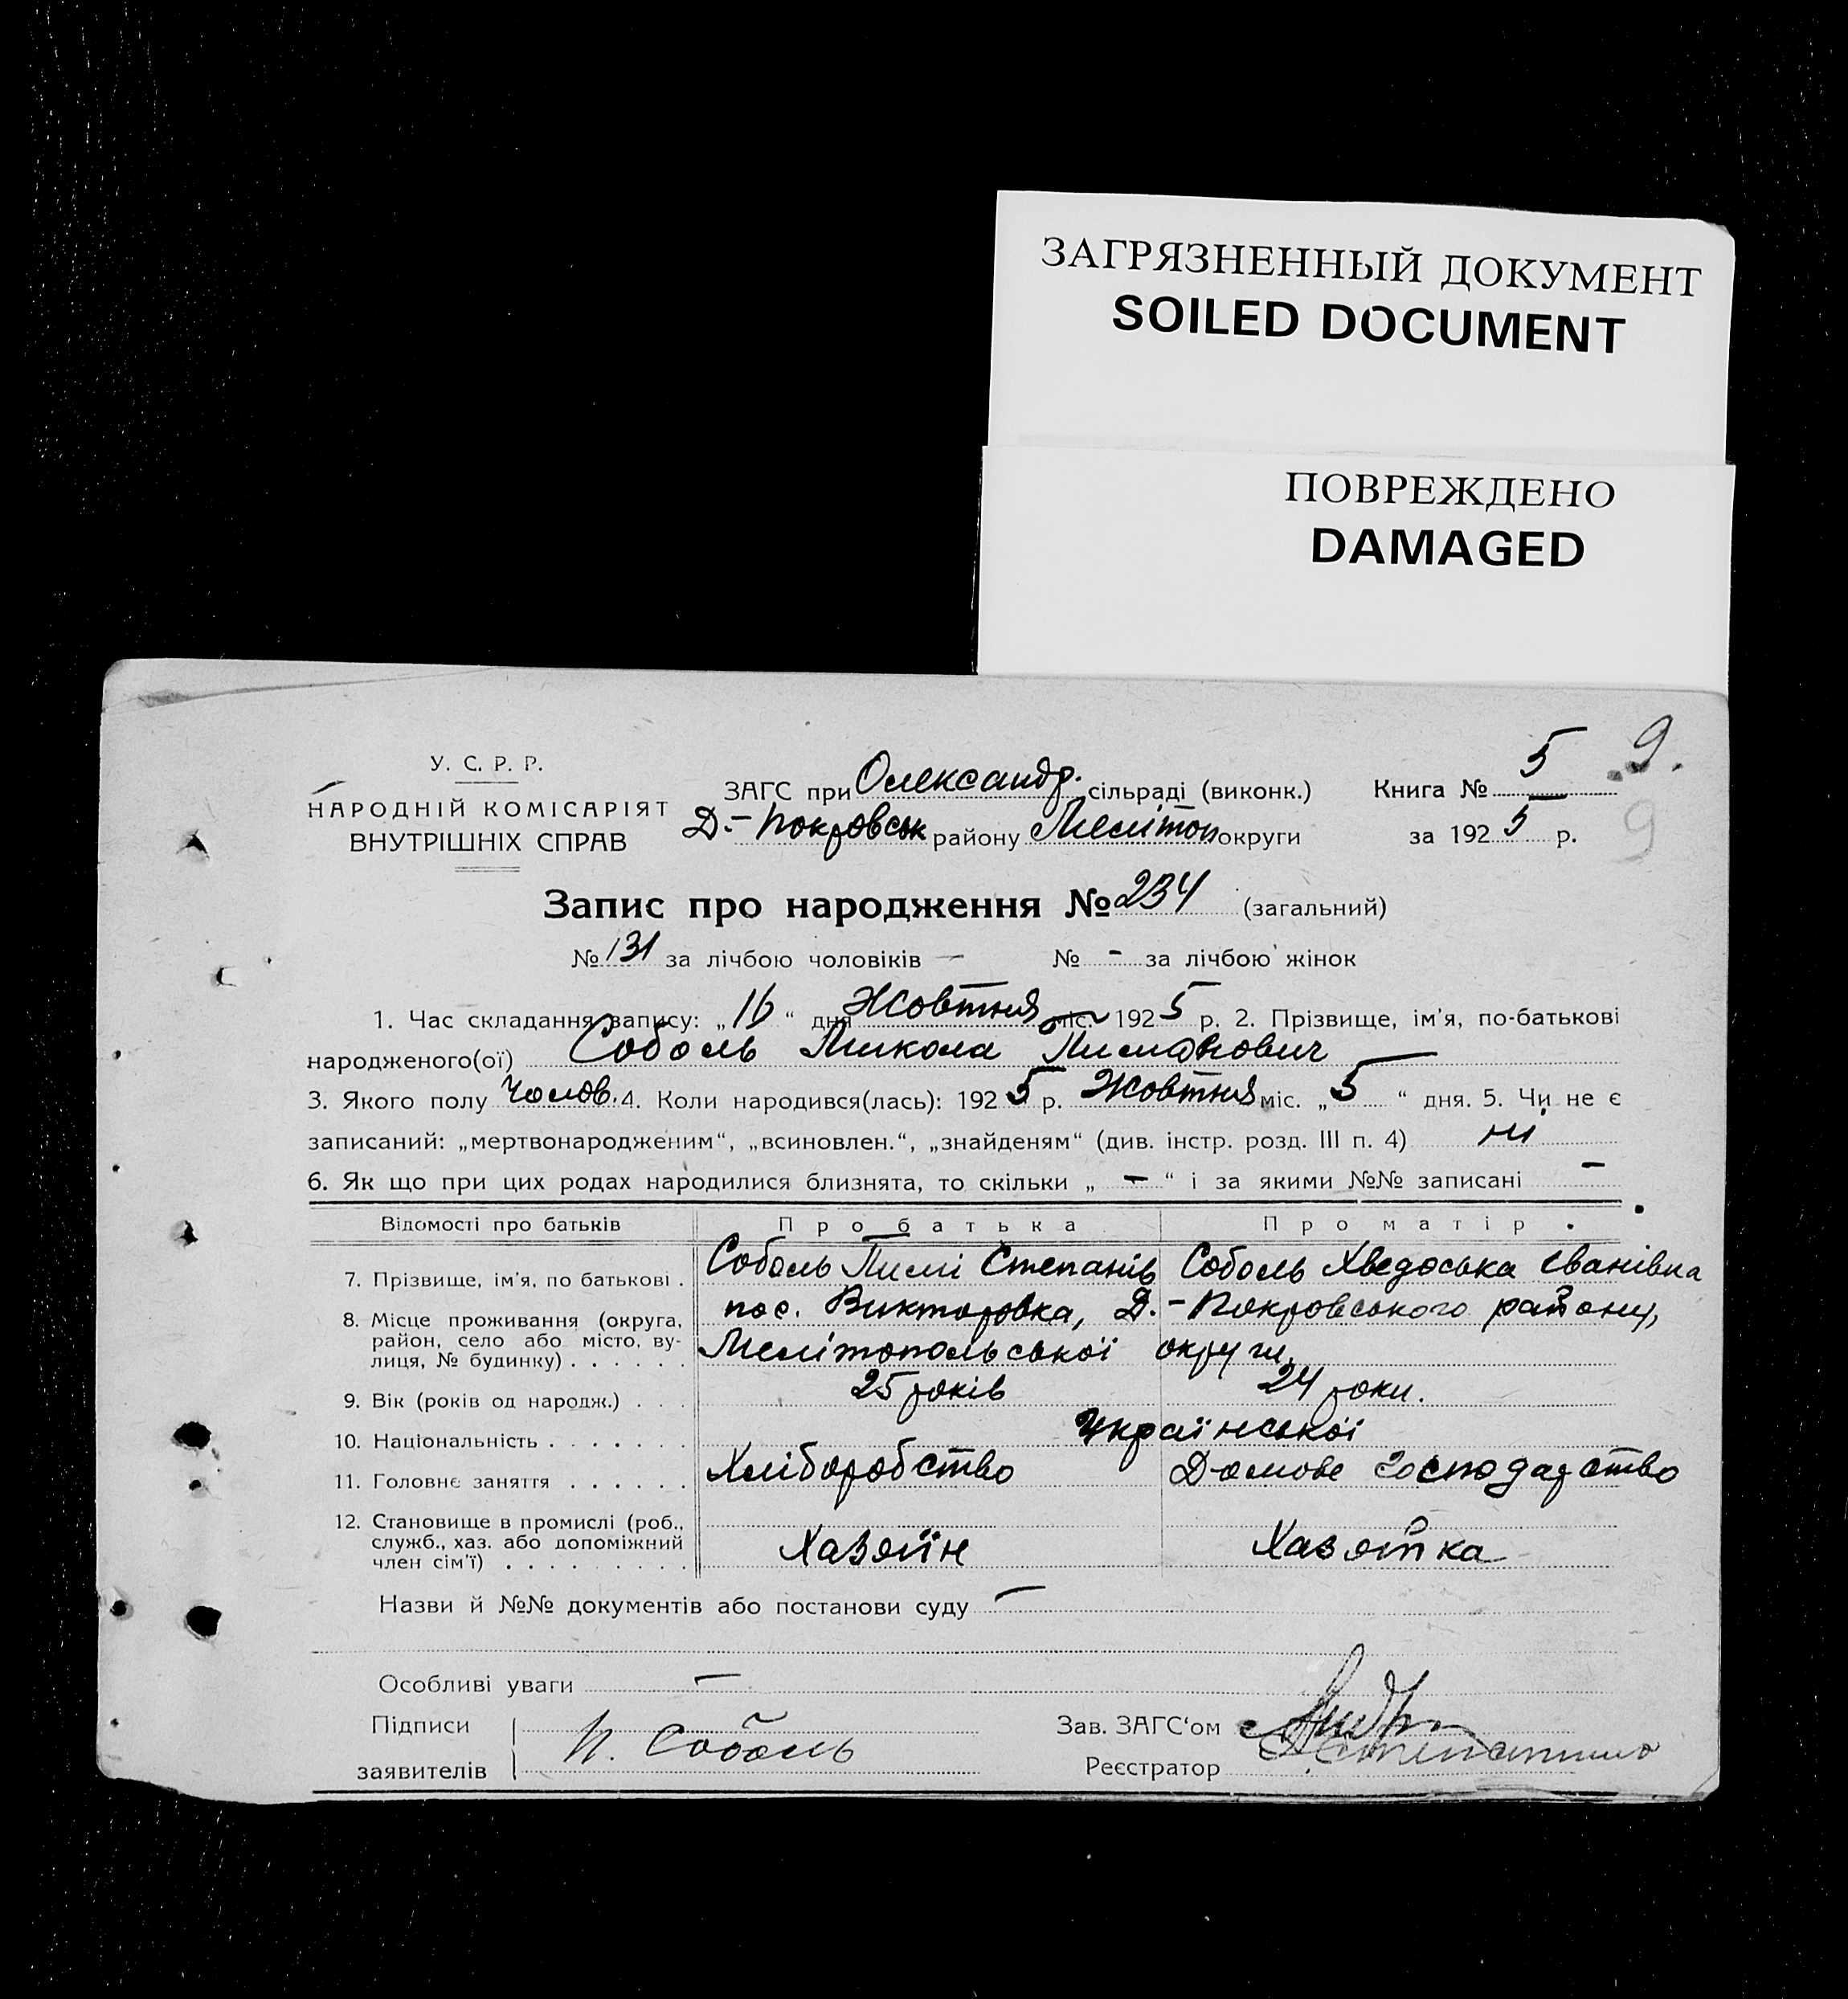 ЗАГРЯЗНЕННЫЙ ДОКУМЕНТ
SOILED DOCUMENT
ПОВРЕЖДЕНО
DAMAGED
9.
9
У. С. Р. Р.
НАРОДНІЙ КОМІСАРІЯТ
ВНУТРІШНІХ СПРАВ
ЗАГС при Олександр. сільраді (виконк.)
Д.-Покровськ району Меліт округи
Книга № 5
за 1925 р.
Запис про народження № 234 (загальний)
№ 131 за лічбою чоловіків — № - за лічбою жінок
1. Час складання запису: „16“ дня Жовтня міс. 1925 р. 2. Прізвище, ім'я, по-батькові
народженого(ої) Соболь Микола
3. Якого полу Чолов. 4. Коли народився(лась): 1925 р. Жовтня міс. „5“ дня. 5. Чи не є
записаний: „мертвонародженим“, „всиновлен.“, „знайденям“ (див. інстр. розд. III п. 4) ні
6. Як що при цих родах народилися близнята, то скільки „—“ і за якими №№ записані —
Відомості про батьків Про батька Про матір
7. Прізвище, ім'я, по батькові . Соболь Степанів Соболь Хведоська Іванівна
8. Місце проживання (округа, пос. Викторовка, Д.-Покровського району,
район, село або місто, ву-
лиця, № будинку) . . . . . . Мелітопольської округи
9. Вік (років од народж.) . . . 25 років 24 роки.
10. Національність . . . . . . . Української
11. Головне заняття . . . . . . Хліборобство Домове господарство
12. Становище в промислі (роб.,
служб., хаз. або допоміжний Хазяїн Хазяйка
член сім'ї) . . . . . . . . .
Назви й №№ документів або постанови суду —
Особливі уваги —
Підписи
заявителів П. Соболь
Зав. ЗАГС'ом
Реєстратор